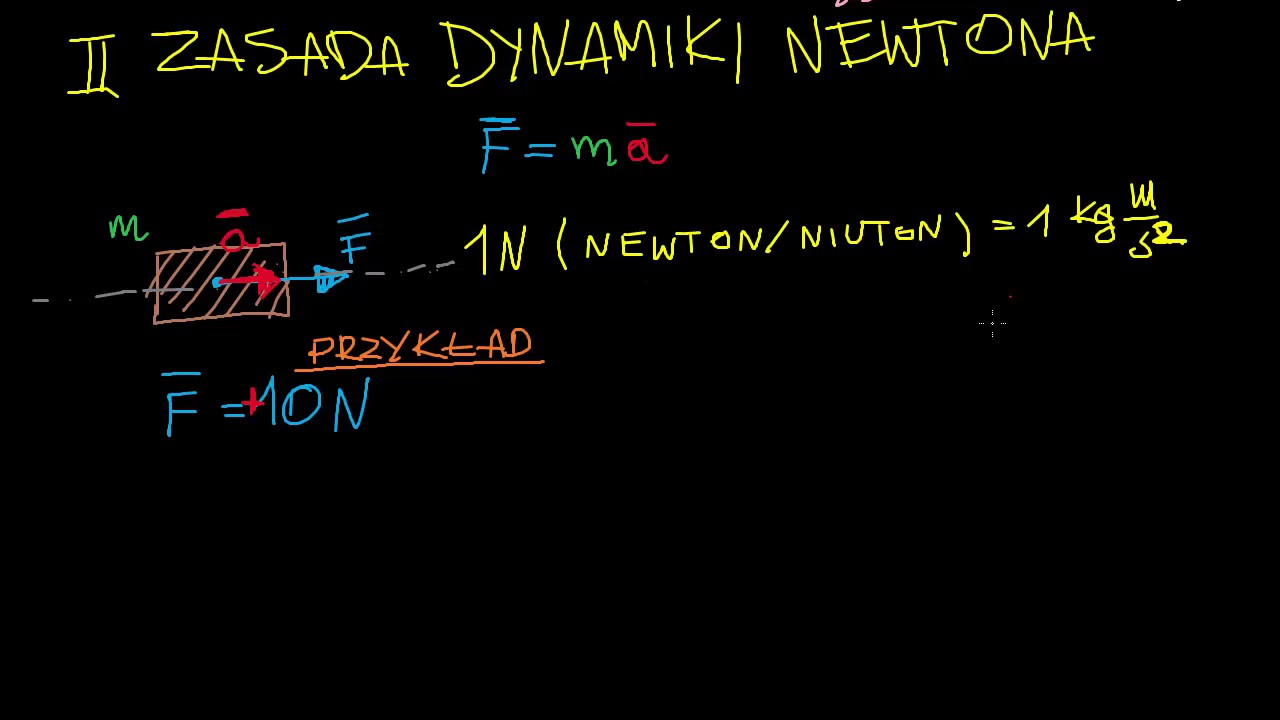 II ZASADA DYNAMIKI NEWTONA
F̅ = m a̅
m a̅ F̅
1N (NEWTON/NIUTON) = 1 kg m/s²
PRZYKŁAD
F̅ = +10 N